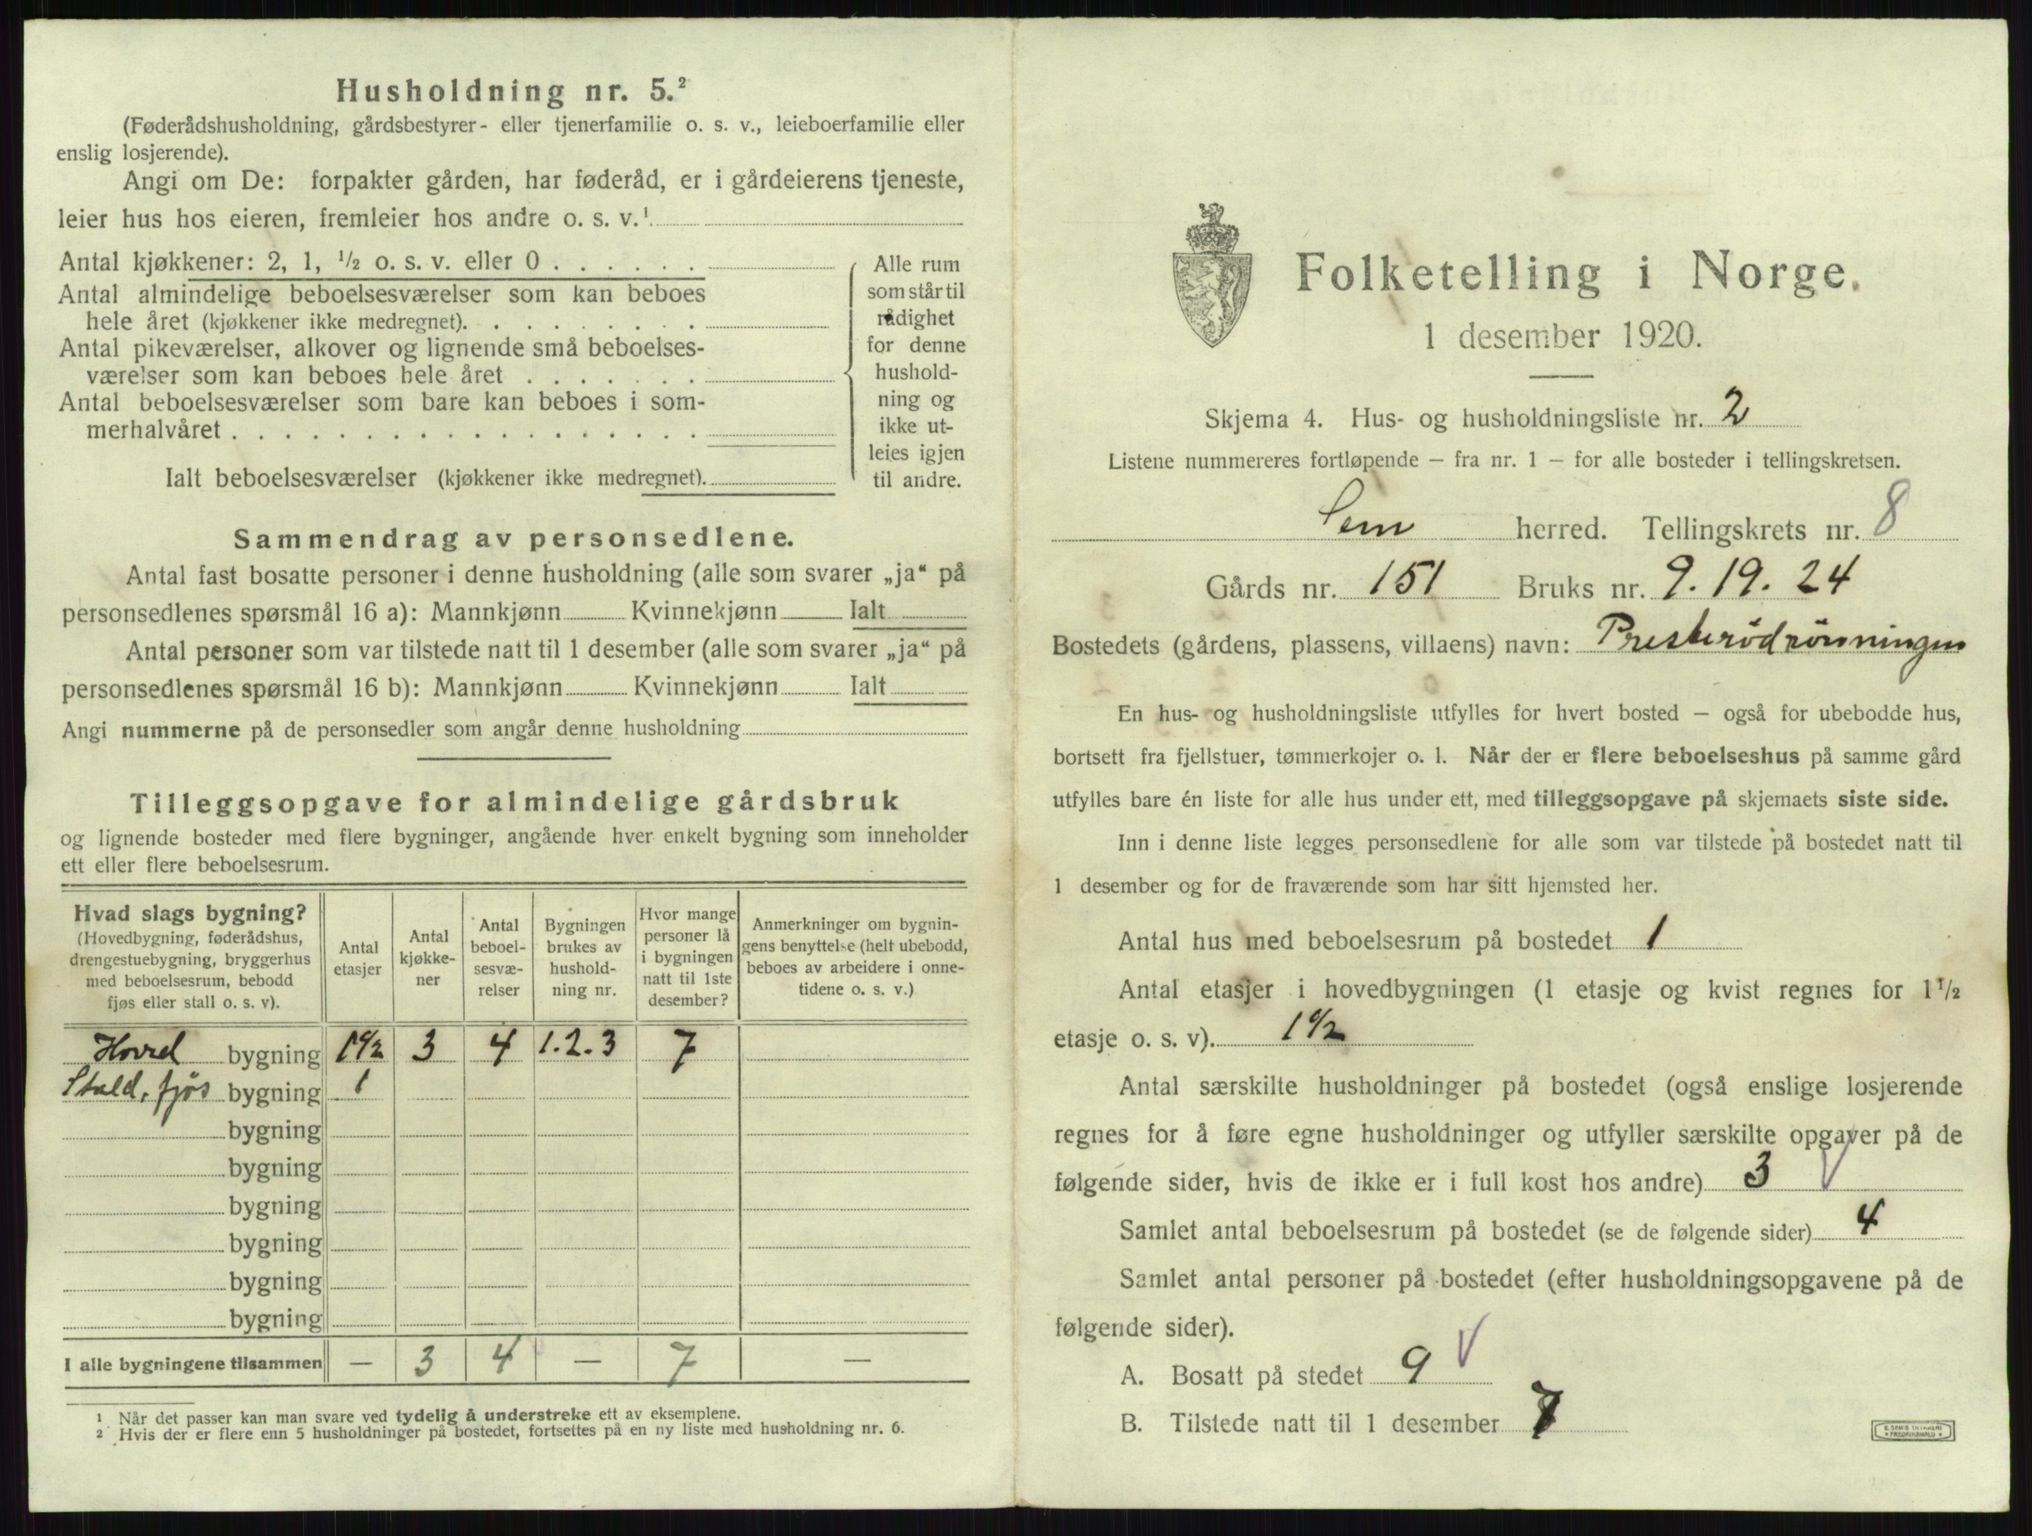 Husholdning nr. 5.²
(Føderådshusholdning, gårdsbestyrer- eller tjenerfamilie o. s. v., leieboerfamilie eller
enslig losjerende).
Angi om De: forpakter gården, har føderåd, er i gårdeierens tjeneste,
leier hus hos eieren, fremleier hos andre o. s. v.¹
Antal kjøkkener: 2, 1, ½ o. s. v. eller 0 . . . . . .
Antal almindelige beboelsesværelser som kan beboes
hele året (kjøkkener ikke medregnet). . . . . . . . .
Antal pikeværelser, alkover og lignende små beboelses-
værelser som kan beboes hele året . . . . . . .
Antal beboelsesværelser som bare kan beboes i som-
merhalvåret . . . . . . . . . . . . . . . . .
Ialt beboelsesværelser (kjøkkener ikke medregnet).
Alle rum
som står til
rådighet
for denne
hushold-
ning og
ikke ut-
leies igjen
til andre.
Sammendrag av personsedlene.
Antal fast bosatte personer i denne husholdning (alle som svarer „ja“ på
personsedlenes spørsmål 16 a): Mannkjønn Kvinnekjønn Ialt
Antal personer som var tilstede natt til 1 desember (alle som svarer „ja“ på
personsedlenes spørsmål 16 b): Mannkjønn Kvinnekjønn Ialt
Angi nummerne på de personsedler som angår denne husholdning
Tilleggsopgave for almindelige gårdsbruk
og lignende bosteder med flere bygninger, angående hver enkelt bygning som inneholder
ett eller flere beboelsesrum.
Hvad slags bygning?
(Hovedbygning, føderådshus,
drengestuebygning, bryggerhus
med beboelsesrum, bebodd
fjøs eller stall o. s. v).
Antal
etasjer
Antal
kjøkke-
ner
Antal
beboel-
sesvæ-
relser
Bygningen
brukes av
hushold-
ning nr.
Hvor mange
personer lå
i bygningen
natt til 1ste
desember?
Anmerkninger om bygnin-
gens benyttelse (helt ubebodd,
beboes av arbeidere i onne-
tidene o. s. v.)
Hoved bygning 1½ 3 4 1.2.3 7
Stald, fjös bygning 1
bygning
bygning
bygning
bygning
bygning
bygning
I alle bygningene tilsammen — 3 4 — 7 —
¹ Når det passer kan man svare ved tydelig å understreke ett av eksemplene.
² Hvis der er flere enn 5 husholdninger på bostedet, fortsettes på en ny liste med husholdning nr. 6.
Folketelling i Norge.
1 desember 1920.
Skjema 4. Hus- og husholdningsliste nr. 2
Listene nummereres fortløpende — fra nr. 1 — for alle bosteder i tellingskretsen.
Sem herred. Tellingskrets nr. 8
Gårds nr. 151 Bruks nr. 9. 19. 24
Bostedets (gårdens, plassens, villaens) navn: Presterödrönningen
En hus- og husholdningsliste utfylles for hvert bosted — også for ubebodde hus,
bortsett fra fjellstuer, tømmerkojer o. l. Når der er flere beboelseshus på samme gård
utfylles bare én liste for alle hus under ett, med tilleggsopgave på skjemaets siste side.
Inn i denne liste legges personsedlene for alle som var tilstede på bostedet natt til
1 desember og for de fraværende som har sitt hjemsted her.
Antal hus med beboelsesrum på bostedet 1
Antal etasjer i hovedbygningen (1 etasje og kvist regnes for 1½
etasje o. s. v). 1½
Antal særskilte husholdninger på bostedet (også enslige losjerende
regnes for å føre egne husholdninger og utfyller særskilte opgaver på de
følgende sider, hvis de ikke er i full kost hos andre) 3 V
Samlet antal beboelsesrum på bostedet (se de følgende sider) 4
Samlet antal personer på bostedet (efter husholdningsopgavene på de
følgende sider).
A. Bosatt på stedet 9 V
B. Tilstede natt til 1 desember 7